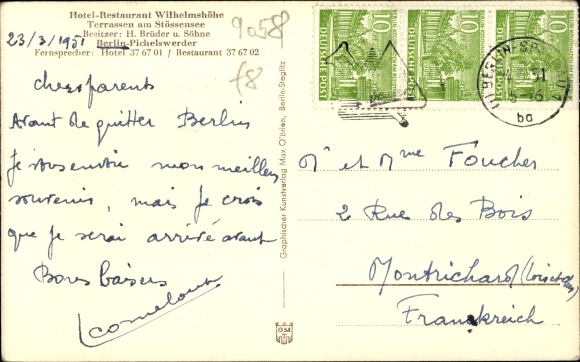 Hotel-Restaurant Wilhelmshöhe
Terrassen am Stössensee
Besitzer: H. Brüder u. Söhne
Berlin-Pichelswerder
Fernsprecher: Hotel 37 67 01 / Restaurant 37 67 02
23/3/1951
9058
f8
chers parents
Avant de quitter Berlin
Je vous envoie mon meilleur
souvenir, mais je crois
que je serai arrivé avant
Bons baisers
Graphischer Kunstverlag Max O'Brien, Berlin-Steglitz
10 DEUTSCHE POST
10 DEUTSCHE POST
10 DEUTSCHE POST
BERLIN-SP
ba
Mr et Mme Foucher
2 Rue des Bois
Montrichard (Loir et Cher)
Frankreich